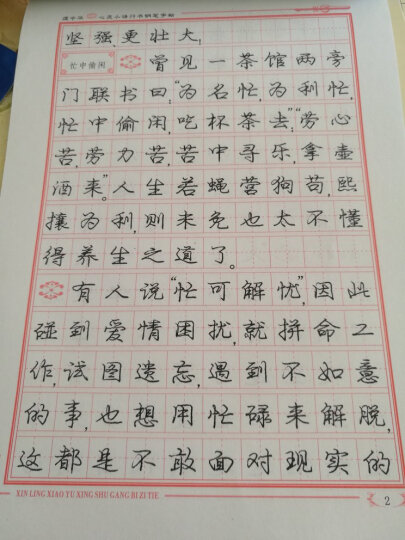 心灵小语行书钢笔字帖
坚强更壮大。
忙中偷闲
曾见一茶馆两旁
门联书曰:“为名忙,为利忙,
忙中偷闲,吃杯茶去;”“劳心
苦,劳力苦,苦中寻乐,拿壶
酒来”。人生若蝇营狗苟,熙
攘为利,则未免也太不懂
得养生之道了。
有人说“忙可解忧”,因此
碰到爱情困扰,就拼命工
作,试图遗忘,遇到不如意
的事,也想用忙碌来解脱,
这都是不敢面对现实的
XIN LING XIAO YU XING SHU GANG BI ZI TIE
2